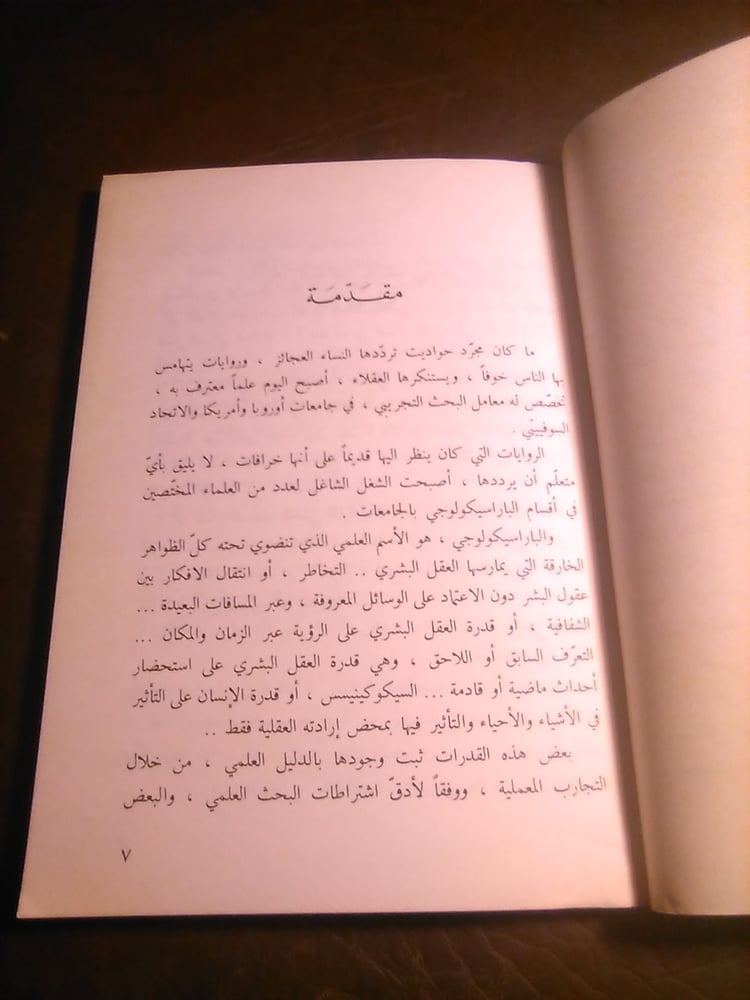 مقدّمة
ما كان مجرّد حواديت تردّدها النساء العجائز ، وروايات يتهامس
بها الناس خوفاً ، ويستنكرها العقلاء ، أصبح اليوم علماً معترف به ،
تخصّص له معامل البحث التجريبي ، في جامعات أوروبا وأمريكا والاتحاد
السوفييتي .
الروايات التي كان ينظر اليها قديماً على أنها خرافات ، لا يليق بأيّ
متعلّم أن يرددها ، أصبحت الشغل الشاغل لعدد من العلماء المختّصين
في أقسام الباراسيكولوجي بالجامعات .
والباراسيكولوجي ، هو الأسم العلمي الذي تنضوي تحته كلّ الظواهر
الخارقة التي يمارسها العقل البشري .. التخاطر ، أو انتقال الافكار بين
عقول البشر دون الاعتماد على الوسائل المعروفة ، وعبر المسافات البعيدة ...
الشفافية ، أو قدرة العقل البشري على الرؤية عبر الزمان والمكان ...
التعرّف السابق أو اللاحق ، وهي قدرة العقل البشري على استحضار
أحداث ماضية أو قادمة ... السيكوكينيسس ، أو قدرة الإنسان على التأثير
في الأشياء والأحياء والتأثير فيها بمحض إرادته العقلية فقط ..
بعض هذه القدرات ثبت وجودها بالدليل العلمي ، من خلال
التجارب المعملية ، ووفقاً لأدقّ اشتراطات البحث العلمي ، والبعض
٧